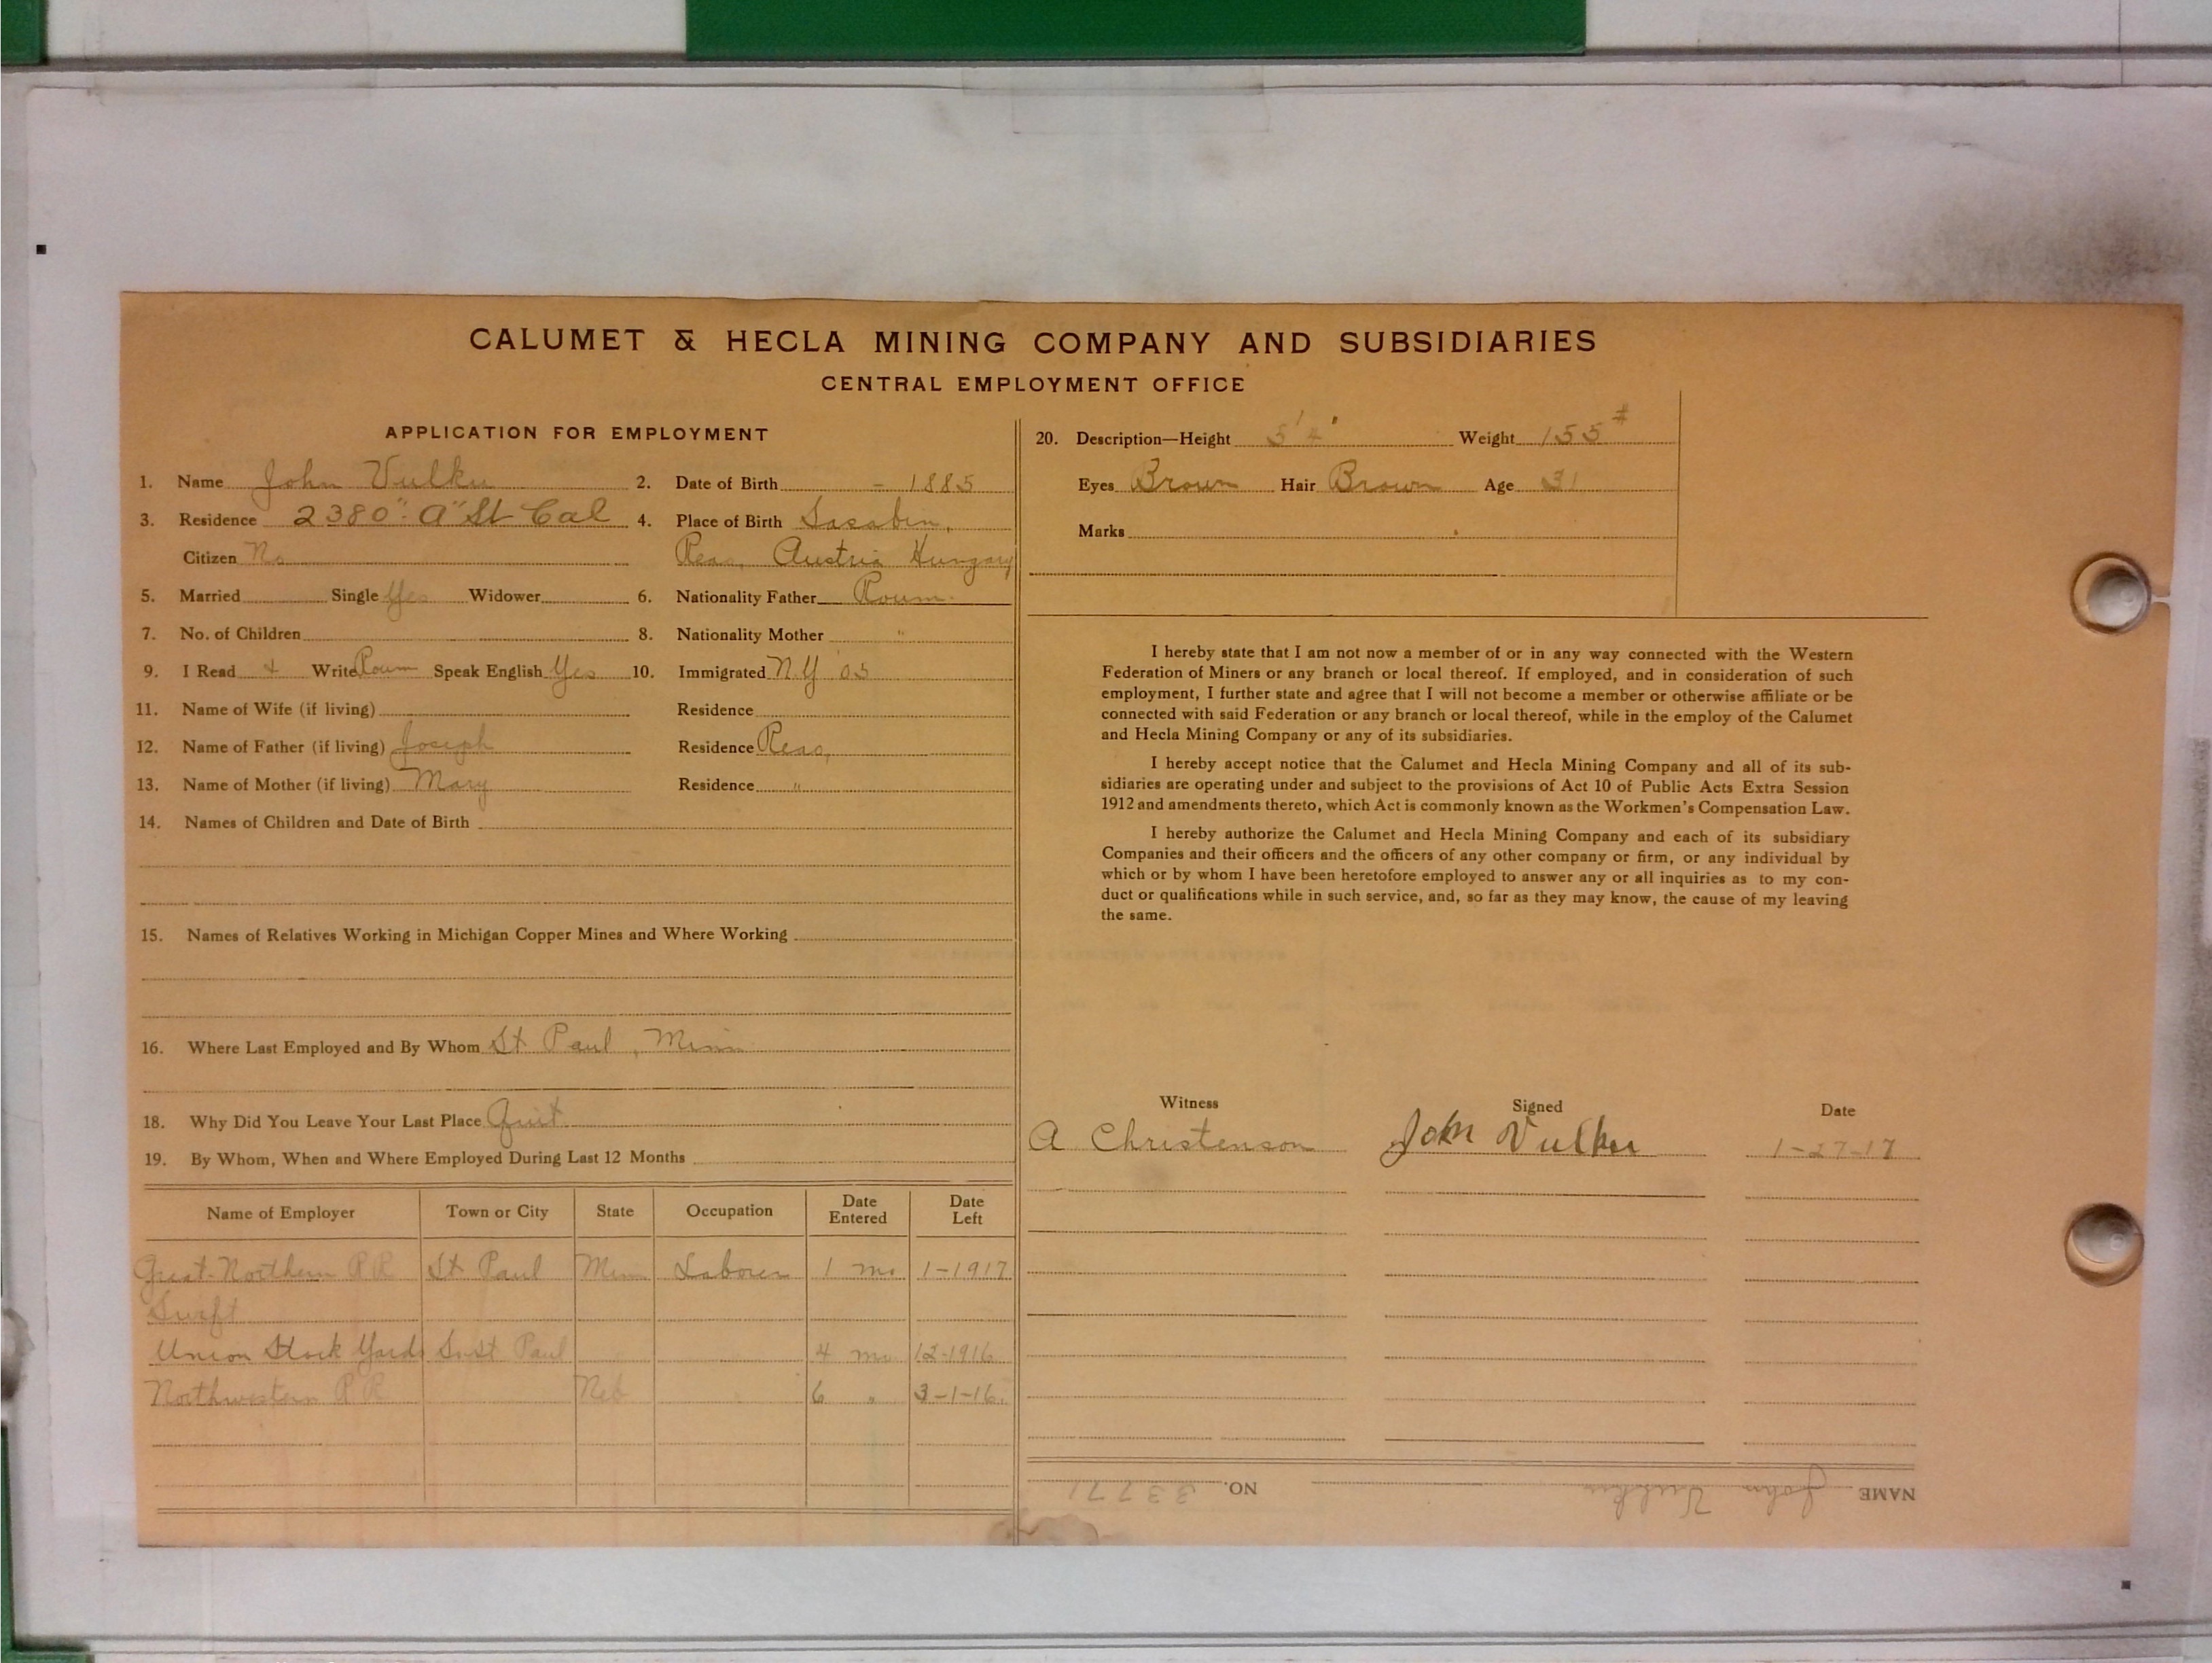 CALUMET & HECLA MINING COMPANY AND SUBSIDIARIES
CENTRAL EMPLOYMENT OFFICE
APPLICATION FOR EMPLOYMENT
1. Name John Vulku 2. Date of Birth - 1885
3. Residence 2380 "A" St Cal 4. Place of Birth
Citizen No Austria Hungary
5. Married Single Yes Widower 6. Nationality Father Roum.
7. No. of Children 8. Nationality Mother "
9. I Read + Write Roum Speak English Yes 10. Immigrated N.Y '05
11. Name of Wife (if living) Residence
12. Name of Father (if living) Joseph Residence
13. Name of Mother (if living) Mary Residence "
14. Names of Children and Date of Birth
15. Names of Relatives Working in Michigan Copper Mines and Where Working
16. Where Last Employed and By Whom St Paul, Minn
18. Why Did You Leave Your Last Place Quit
19. By Whom, When and Where Employed During Last 12 Months
Name of Employer Town or City State Occupation Date Entered Date Left
Great Northern R R St Paul Minn Laborer 1 mo 1-1917
Swift
Union Stock Yards So St Paul 4 mo 12-1916
Northwestern R R Neb 6 " 3-1-16.
20. Description—Height 5'4" Weight 155#
Eyes Brown Hair Brown Age 31
Marks
I hereby state that I am not now a member of or in any way connected with the Western
Federation of Miners or any branch or local thereof. If employed, and in consideration of such
employment, I further state and agree that I will not become a member or otherwise affiliate or be
connected with said Federation or any branch or local thereof, while in the employ of the Calumet
and Hecla Mining Company or any of its subsidiaries.
I hereby accept notice that the Calumet and Hecla Mining Company and all of its sub-
sidiaries are operating under and subject to the provisions of Act 10 of Public Acts Extra Session
1912 and amendments thereto, which Act is commonly known as the Workmen's Compensation Law.
I hereby authorize the Calumet and Hecla Mining Company and each of its subsidiary
Companies and their officers and the officers of any other company or firm, or any individual by
which or by whom I have been heretofore employed to answer any or all inquiries as to my con-
duct or qualifications while in such service, and, so far as they may know, the cause of my leaving
the same.
Witness Signed Date
A Christenson John Vulku 1-27-17
NAME John Vulku NO. 33771